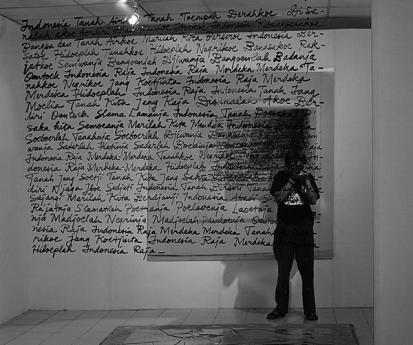 Indonesia Tanah Airkoe Tanah Toempah Darahkoe Disa-
nalah akoe berdiri
Bangsa dan Tanah Airkoe Marilah Kita Berseroe Indonesia Ber-
satoe Hidoeplah Tanahkoe Hidoeplah Negrikoe Bangsakoe Rak-
jatkoe Semoeanja Bangoenlah Djiwanja Bangoenlah Badanja
Oentoek Indonesia Raja Indonesia Raja Merdeka Merdeka Ta-
nahkoe Negrikoe Jang Koetjinta Indonesia Raja Merdeka
Merdeka Hidoeplah Indonesia Raja Indonesia Tanah Jang
Moelia Tanah Kita Jang Kaja Disanalah Akoe Ber-
diri Oentoek Slama Lamanja Indonesia Tanah
saka Kita Semoeanja Marilah Kita Mendoa Indonesia
Soeboerlah Tanahnja Soeboerlah Djiwanja
wanja Sadarlah Hatinja Sadarlah
Indonesia Raja Merdeka Merdeka Tanahkoe Negrikoe
Indonesia Raja Merdeka Merdeka Hidoeplah Indonesia
Tanah Jang Soetji Tanah Kita Jang Sakti
diri Njaga Iboe Sedjati Indonesia Tanah Berseri Tanah
Sajangi Marilah Kita Berdjandji Indonesia Abadi
Rajatnja Slamatlah Poetranja Poelaoenja Laoetnja
nja Madjoelah Negrinja Madjoelah Pandoenja Oentoek
nesia Raja Indonesia Raja Merdeka Merdeka Tanah
rikoe Jang Koetjinta Indonesia Raja Merdeka
Hidoeplah Indonesia Raja